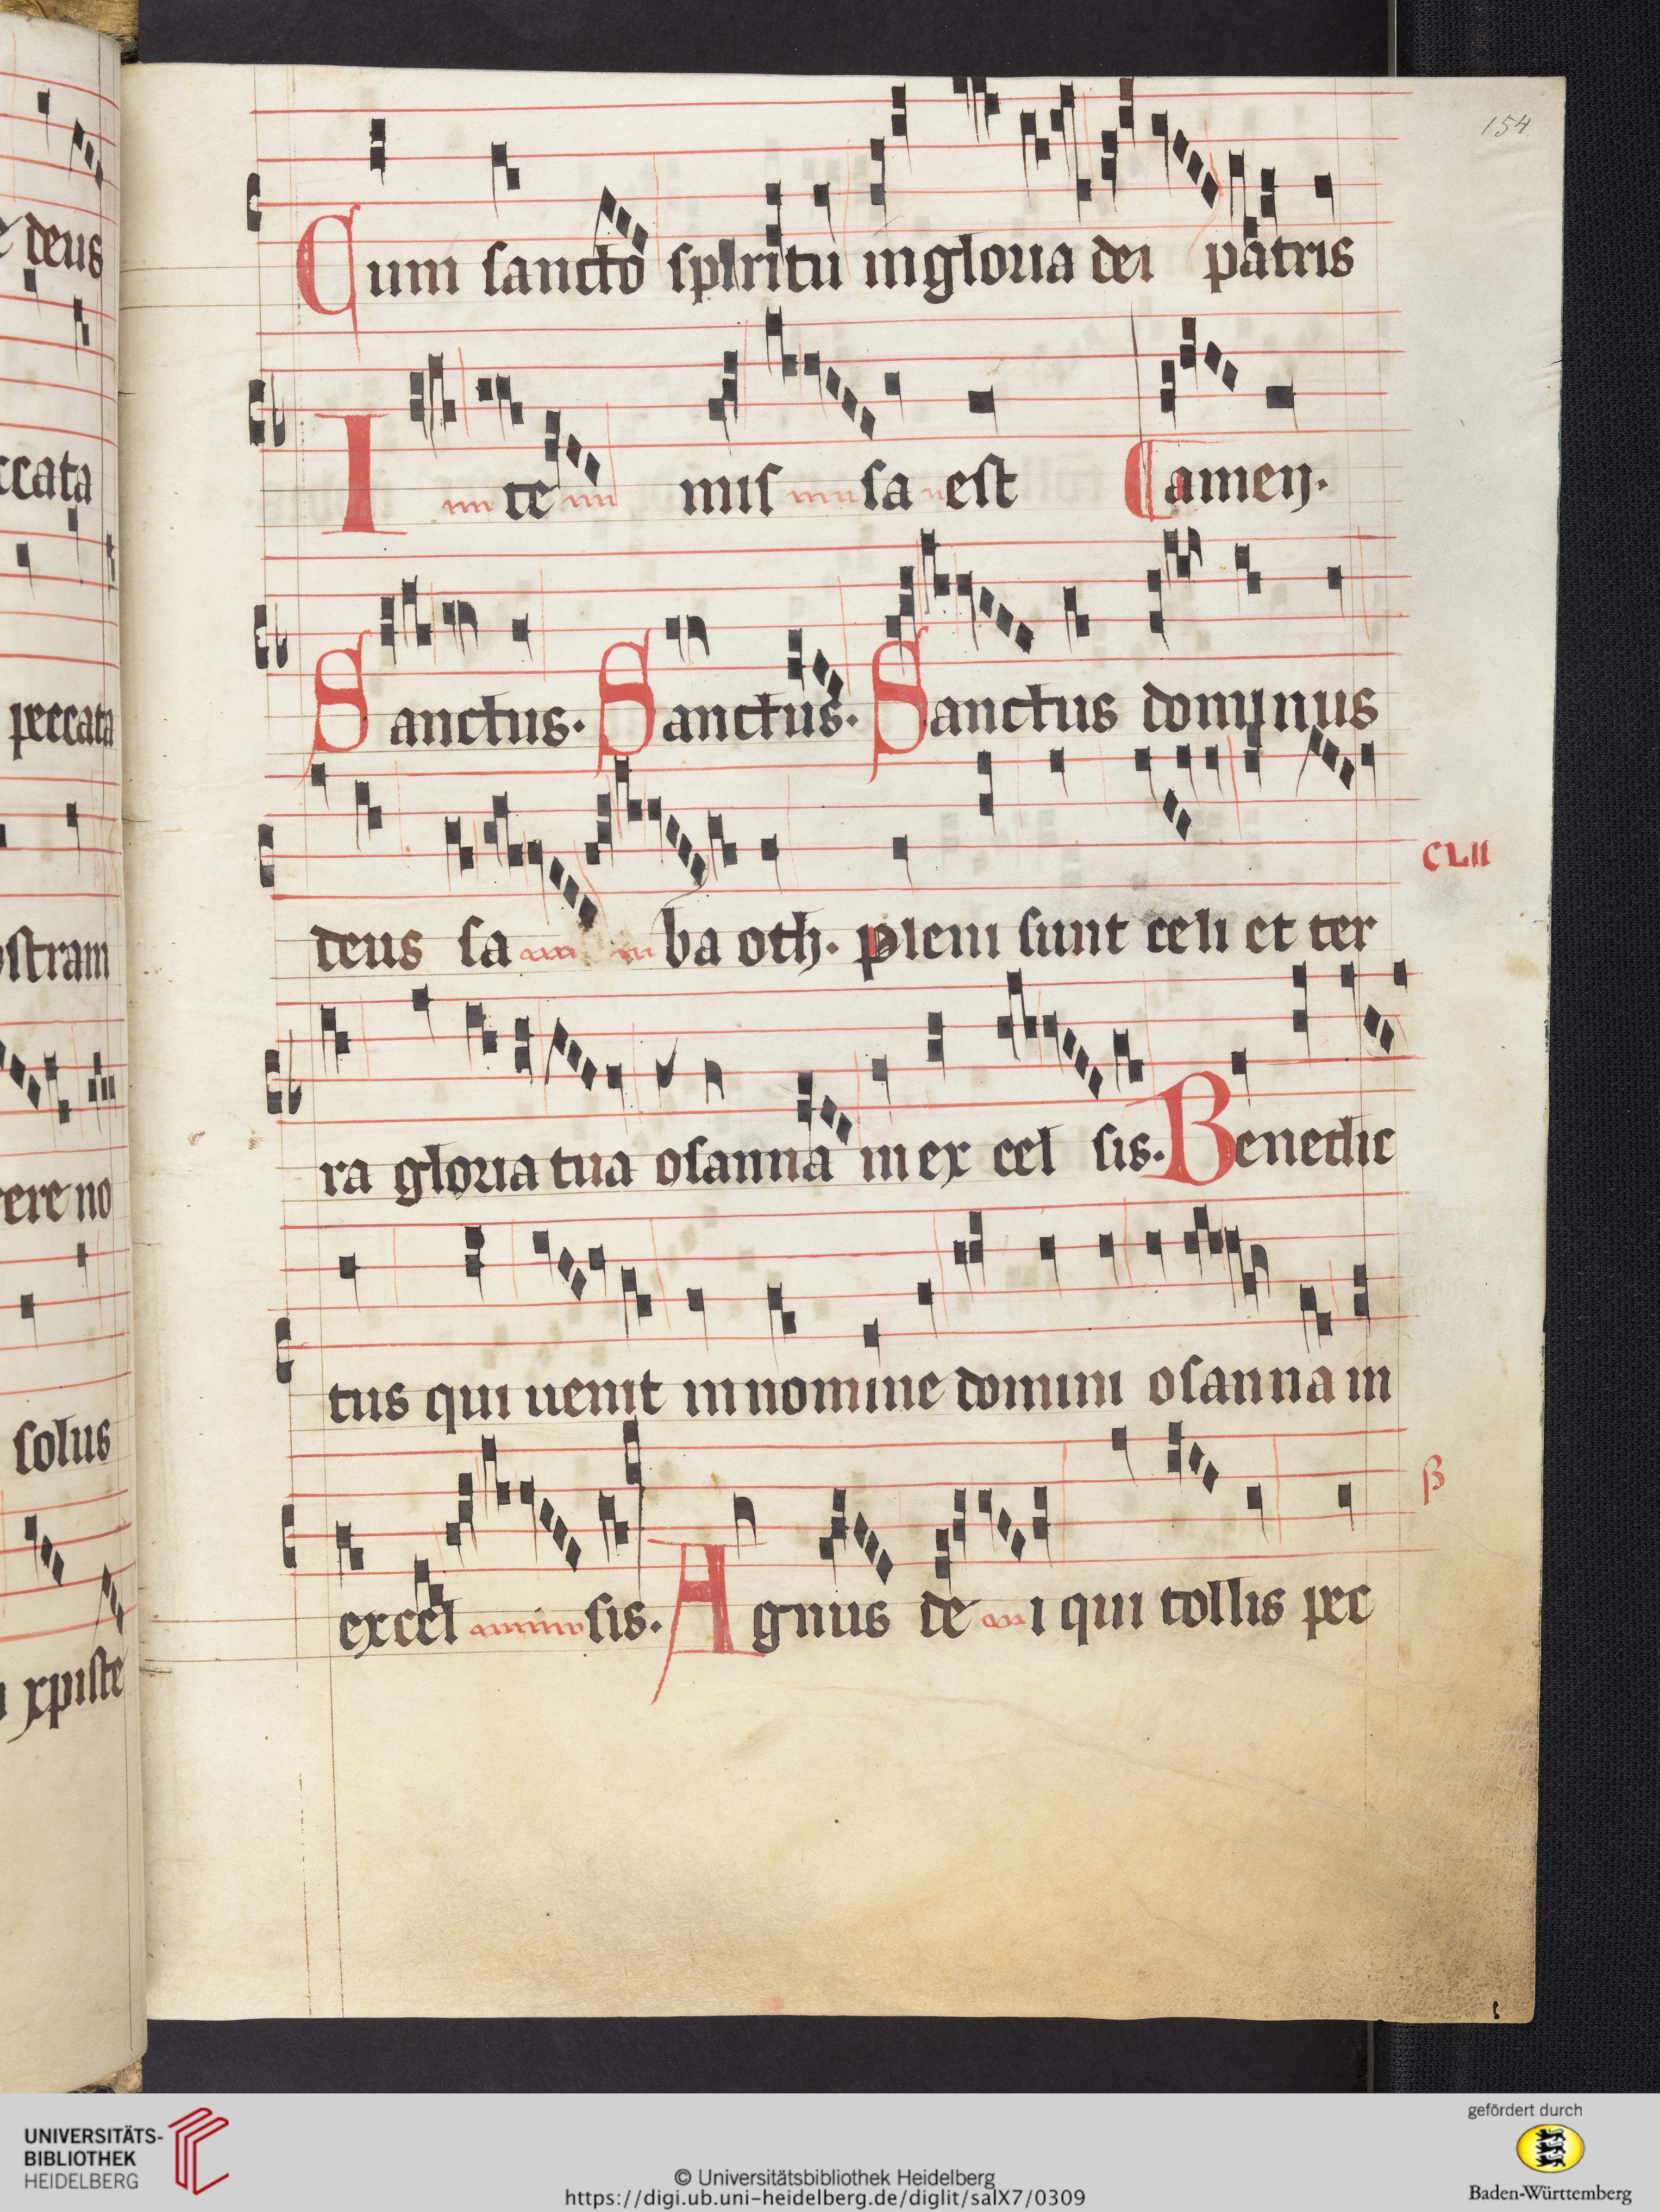 e deus
ccata
peccata
ostram
rere no
solus
xpiste
154
Cum sancto spiritu in gloria dei patris
Ite missa est amen.
Sanctus. Sanctus. Sanctus dominus
deus sa ba oth. pleni sunt celi et ter
CLII
ra gloria tua osanna in ex cel sis. Benedic
tus qui uenit in nomine domini osanna in
excel sis. Agnus de i qui tollis pec
β
UNIVERSITÄTS-
BIBLIOTHEK
HEIDELBERG
© Universitätsbibliothek Heidelberg
https://digi.ub.uni-heidelberg.de/diglit/salX7/0309
gefördert durch
Baden-Württemberg